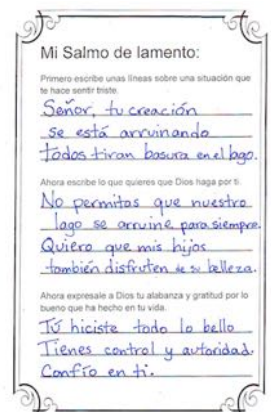 Mi Salmo de lamento:
Primero escribe unas líneas sobre una situación que
te hace sentir triste.
Señor, tu creación
se está arruinando
todos tiran basura en el lago.
Ahora escribe lo que quieres que Dios haga por ti.
No permitas que nuestro
lago se arruine para siempre.
Quiero que mis hijos
también disfruten de su belleza.
Ahora expresale a Dios tu alabanza y gratitud por lo
bueno que ha hecho en tu vida.
Tú hiciste todo lo bello
Tienes control y autoridad.
Confío en ti.